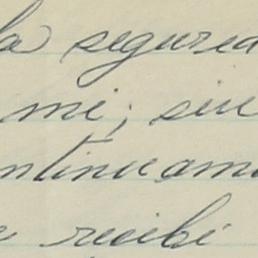 la segurid
mi; sin
ntinuam
recibí